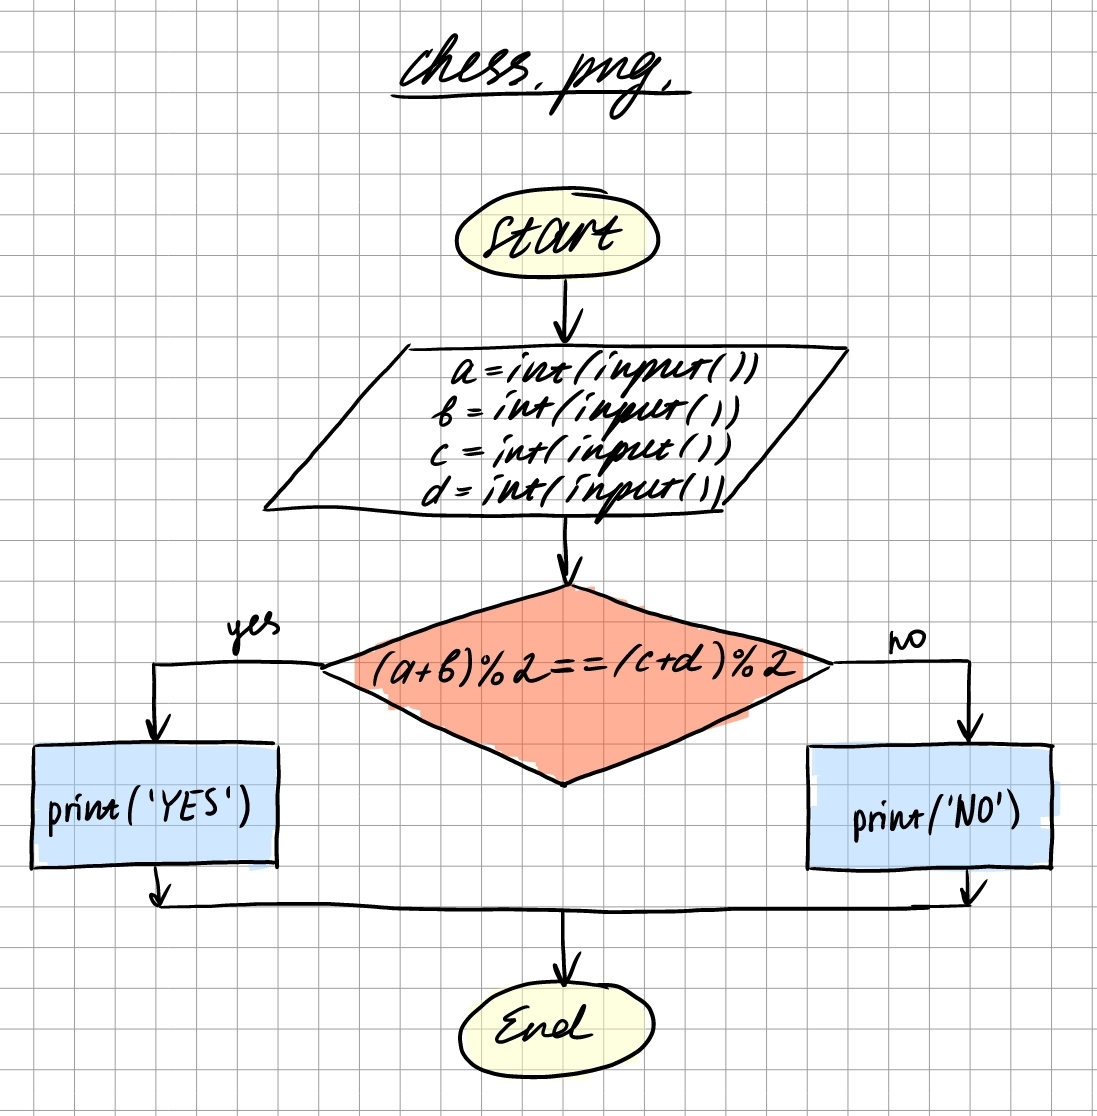 chess.png.
start
a=int(input())
b=int(input())
c=int(input())
d=int(input())
yes
no
(a+b)%2==(c+d)%2
print('YES')
print('NO')
End